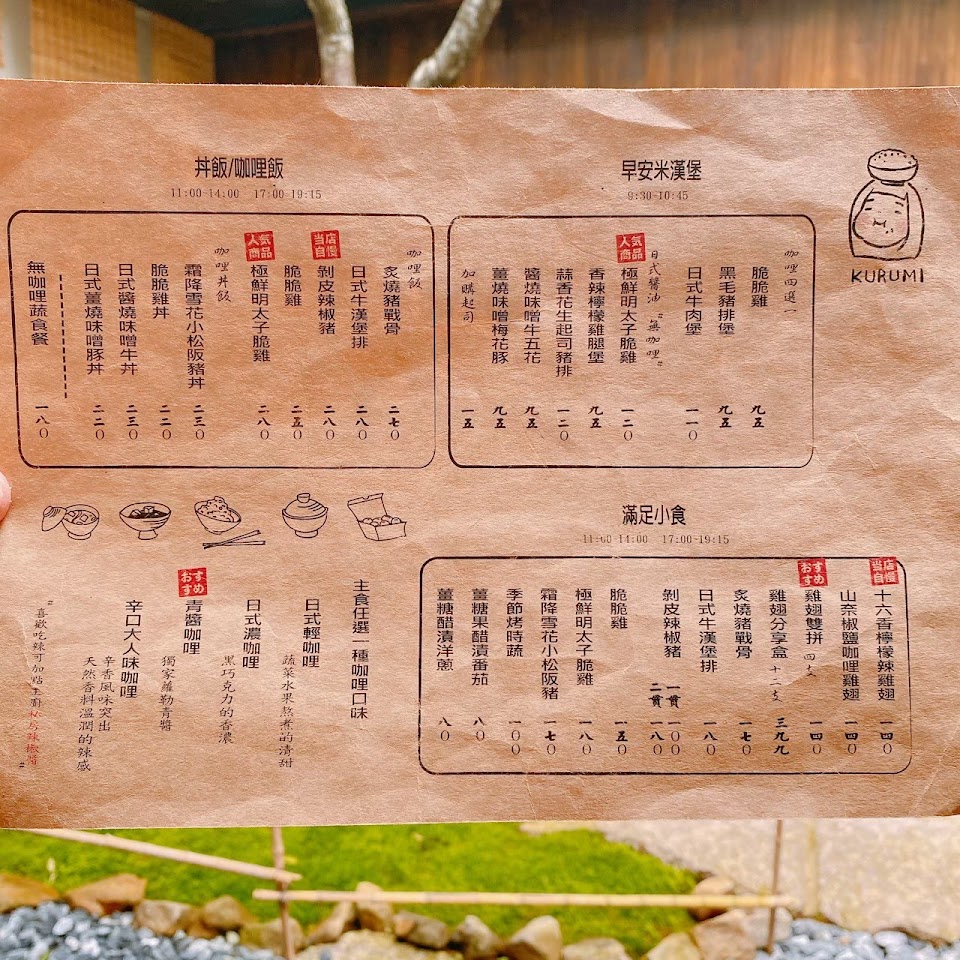 早安米漢堡
9:30-10:45
咖哩四選一
脆脆雞 九五
黑毛豬排堡 九五
日式牛肉堡 一一〇
日式醬油"無咖哩"
人気商品
極鮮明太子脆雞 一二〇
香辣檸檬雞腿堡 九五
蒜香花生起司豬排 一二〇
醬燒味噌牛五花 九五
薑燒味噌梅花豚 九五
加購起司 一五
KURUMI
丼飯/咖哩飯
11:00-14:00 17:00-19:15
咖哩飯
炙燒豬戰骨 二七〇
日式牛漢堡排 二八〇
当店自慢
剝皮辣椒豬 二八〇
脆脆雞 二五〇
人気商品
極鮮明太子脆雞 二八〇
咖哩丼飯
霜降雪花小松阪豬丼 二三〇
脆脆雞丼 二二〇
日式醬燒味噌牛丼 二三〇
日式薑燒味噌豚丼 二二〇
無咖哩蔬食餐 一八〇
滿足小食
11:00-14:00 17:00-19:15
当店自慢
十六香檸檬辣雞翅 一四〇
山奈椒鹽咖哩雞翅 一四〇
おすすめ
雞翅雙拼 四支 一四〇
雞翅分享盒 十二支 三九九
炙燒豬戰骨 一七〇
日式牛漢堡排 一八〇
剝皮辣椒豬 一貫 一〇〇
二貫 一八〇
脆脆雞 一五〇
極鮮明太子脆雞 一八〇
霜降雪花小松阪豬 一七〇
季節烤時蔬 一〇〇
薑糖果醋漬番茄 八〇
薑糖醋漬洋蔥 八〇
主食任選一種咖哩口味
日式輕咖哩
蔬菜水果熬煮的清甜
日式濃咖哩
黑巧克力的香濃
おすすめ
青醬咖哩
獨家蘿勒青醬
辛口大人味咖哩
辛香風味突出
天然香料溫潤的辣感
"喜歡吃辣可加點主廚私房辣椒醬"